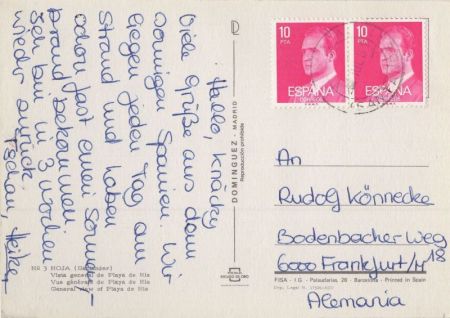 Hallo, Knäcky,
Viele Grüße aus dem
sonnigen Spanien. Wir
liegen jeden Tag am
Strand und haben
schon fast einen Sonnen-
brand bekommen.
Ich bin in 3 Wochen
wieder zurück.
Tschau, Heike
Nº 3 NOJA (Santander)
Vista general de Playa de Ris
Vue générale de Playa de Ris
General view of Playa de Ris
DOMINGUEZ - MADRID
Reproducción prohibida
10
PTA
ESPAÑA
CORREOS
10
PTA
ESPAÑA
An
Rudolf Könnecke
Bodenbacher Weg
18
6000 Frankfurt/M
FISA - I.G. - Palaudarias, 26 - Barcelona - Printed in Spain
Alemania